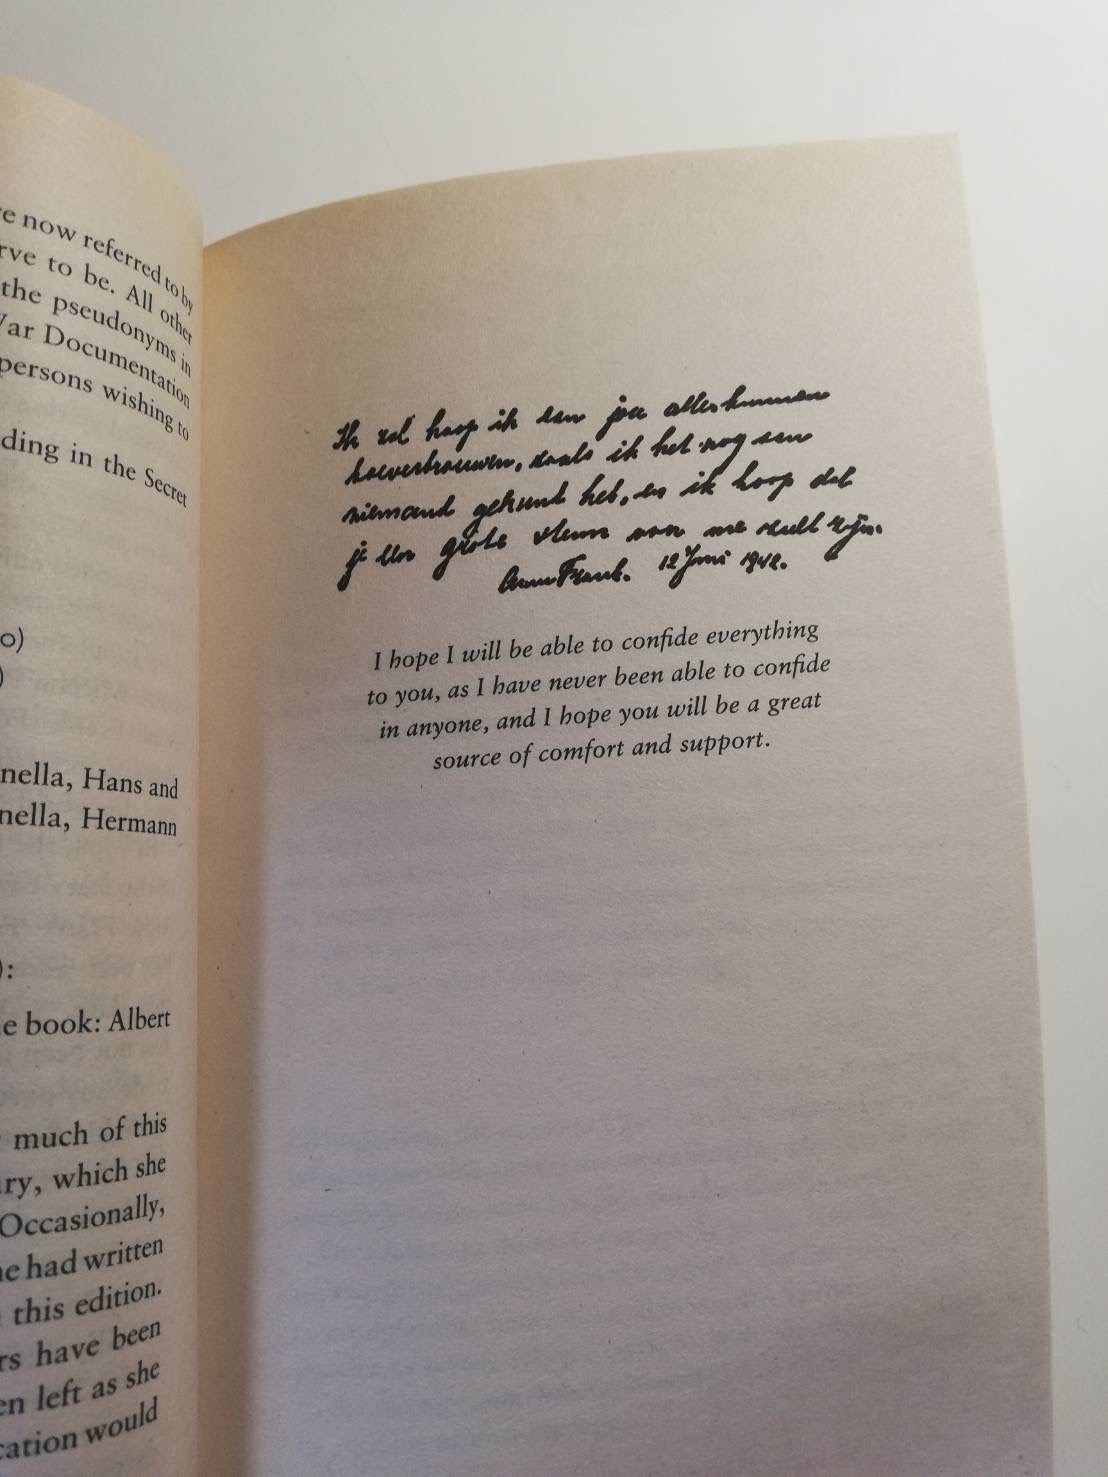 e now referred to by
rve to be. All other
the pseudonyms in
War Documentation
persons wishing to
ding in the Secret
o)
)
nella, Hans and
nella, Hermann
):
e book: Albert
much of this
ry, which she
Occasionally,
e had written
this edition.
rs have been
en left as she
cation would
Ik zal hoop ik aan jou alles kunnen
toevertrouwen, zoals ik het nog aan
niemand gekund heb, en ik hoop dat
je een grote steun van me zult zijn.
Anne Frank. 12 Juni 1942.
I hope I will be able to confide everything
to you, as I have never been able to confide
in anyone, and I hope you will be a great
source of comfort and support.